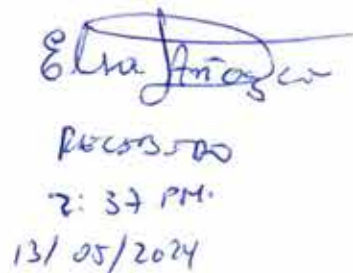 Elsa Añazco
RECIBIDO
2:37 PM.
13/05/2024